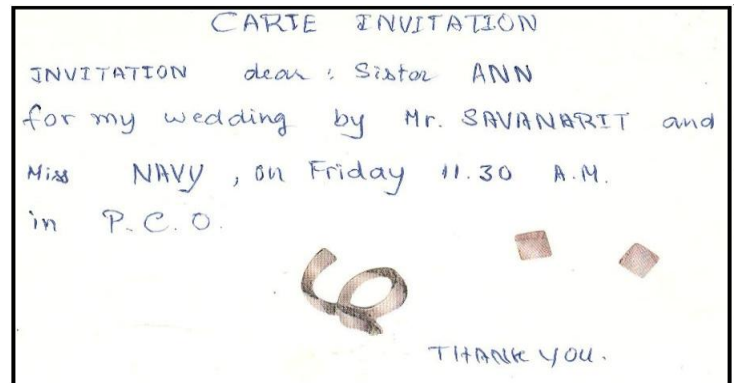 CARTE INVITATION
INVITATION dear : Sister ANN
for my wedding by Mr. SAVANARIT and
Miss NAVY, on Friday 11.30 A.M.
in P.C.O.
THANK YOU.